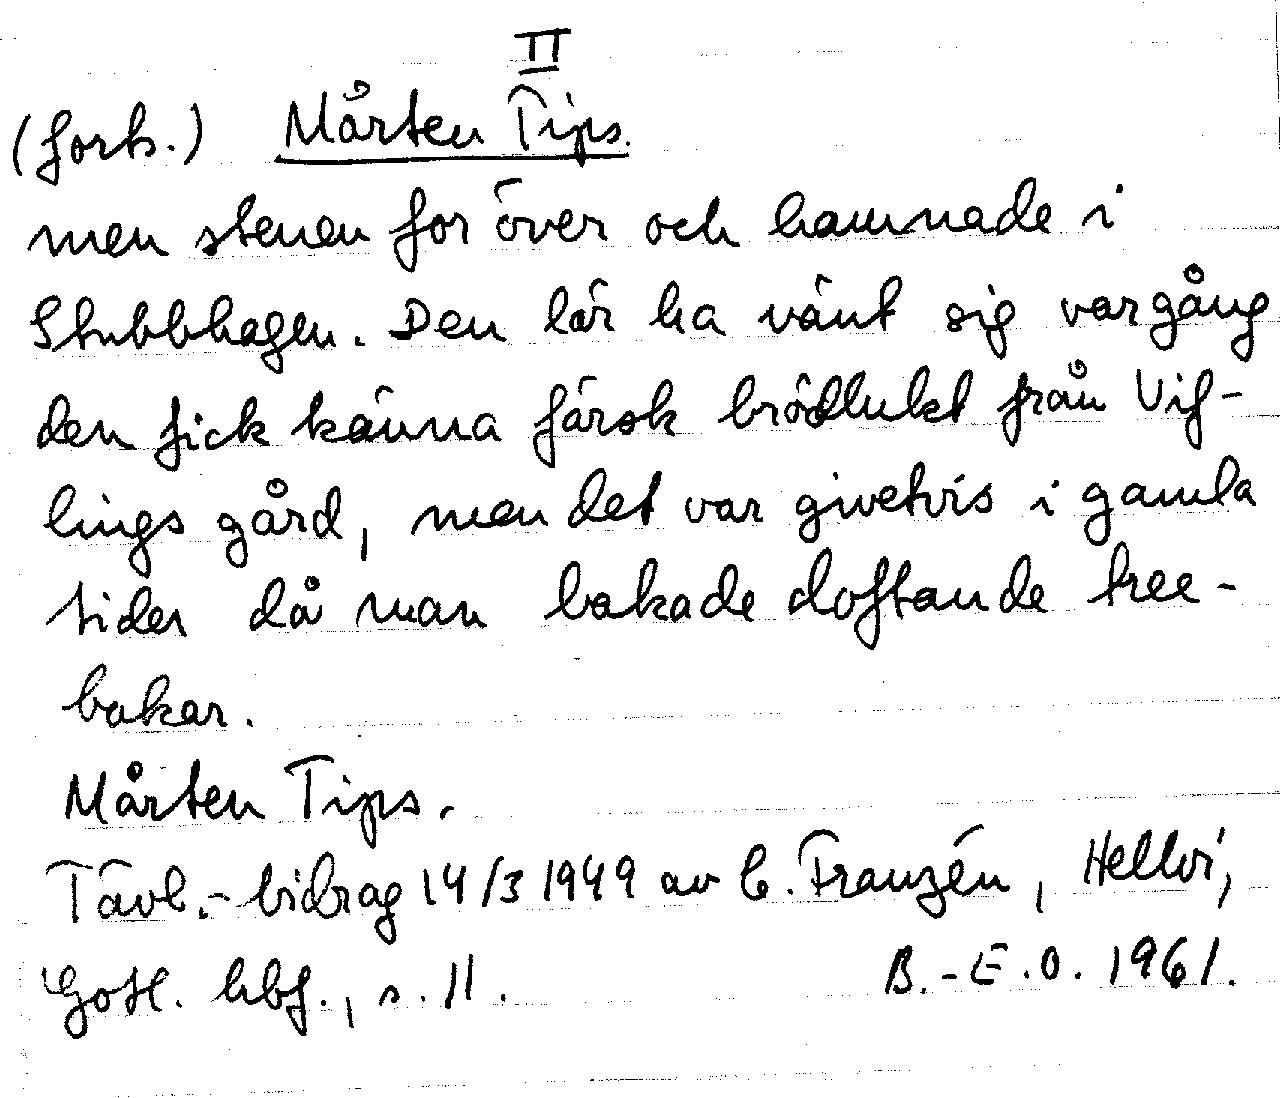 II
(forts.) Mårten Tips.
men stenen for över och hamnade i
Stubbhagen. Den lär ha vänt sig var gång
den fick känna färsk brödlukt från Vif-
lings gård, men det var givetvis i gamla
tider då man bakade doftande tree-
bakar.
Mårten Tips.
Tävl.-bidrag 14/3 1949 av C. Franzén, Hellvi,
Gotl. hbf., s. 11. B.-E.O. 1961.